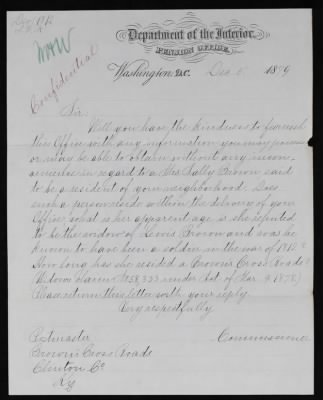 War 1812
Department of the Interior,
PENSION OFFICE,
Washington D.C. Dec 5 1879
Confidential
Sir:
Will you have the kindness to furnish
this Office with any information you may possess
or may be able to obtain without any incon-
venience in regard to a Mrs Sally Brown said
to be a resident of your neighborhood. Does
such a person reside within the delivery of your
Office, what is her apparent age, is she reputed
to be the widow of Lewis Brown and was he
known to have been a soldier in the war of 1812?
How long has she resided a Browns Cross Roads?
Widows Claim No 58,333 under Act of Mar. 9 1878)
Please return this letter with your reply.
Very respectfully
Postmaster
Commissioner
Browns Cross Roads
Clinton Co
Ky